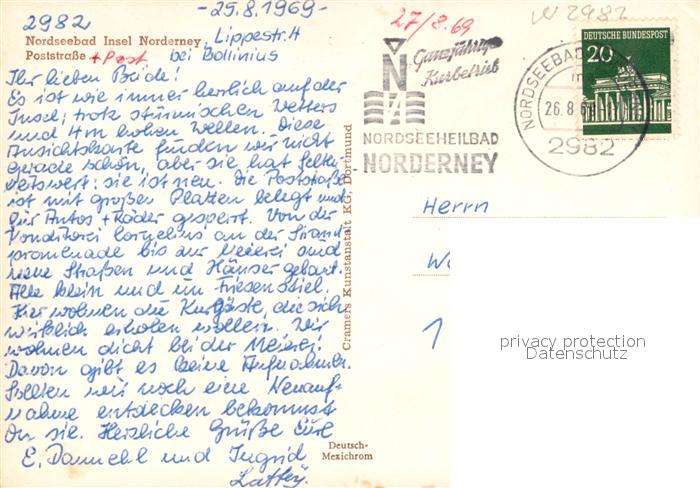 2982 -25.8.1969-
27/8.69
W 2982
Nordseebad Insel Norderney, Lippestr. 4
Poststraße + Post bei Bollinius
Ihr lieben Beide!
Es ist wie immer herrlich auf der
Insel; trotz stürmischen Wetters
und 4m hohen Wellen. Diese
Ansichtskarte fanden wir nicht
gerade schön, aber sie hat Selten-
heitswert: sie ist neu. Die Poststraße
ist mit großen Platten belegt und
für Autos + Räder gesperrt. Von der
Konditorei Cornelius an der Strand
promenade bis zur Meierei sind
neue Straßen und Häuser gebaut.
Alle klein und im Friesenstiel.
Hier wohnen die Kurgäste, die sich
wirklich erholen wollen. Wir
wohnen dicht bei der Meierei.
Davon gibt es keine Aufnahme.
Sollten wir noch eine Neuauf-
nahme entdecken bekommst
Du sie. Herzliche Grüße Eure
E. und Ingrid
Cramers Kunstanstalt KG, Dortmund
Deutsch-
Mexichrom
Ganzjährig
Kurbetrieb
N
NORDSEEHEILBAD
NORDERNEY
NORDSEEBAD
26.8.6
2982
DEUTSCHE BUNDESPOST
20
Herrn
W
1
privacy protection
Datenschutz